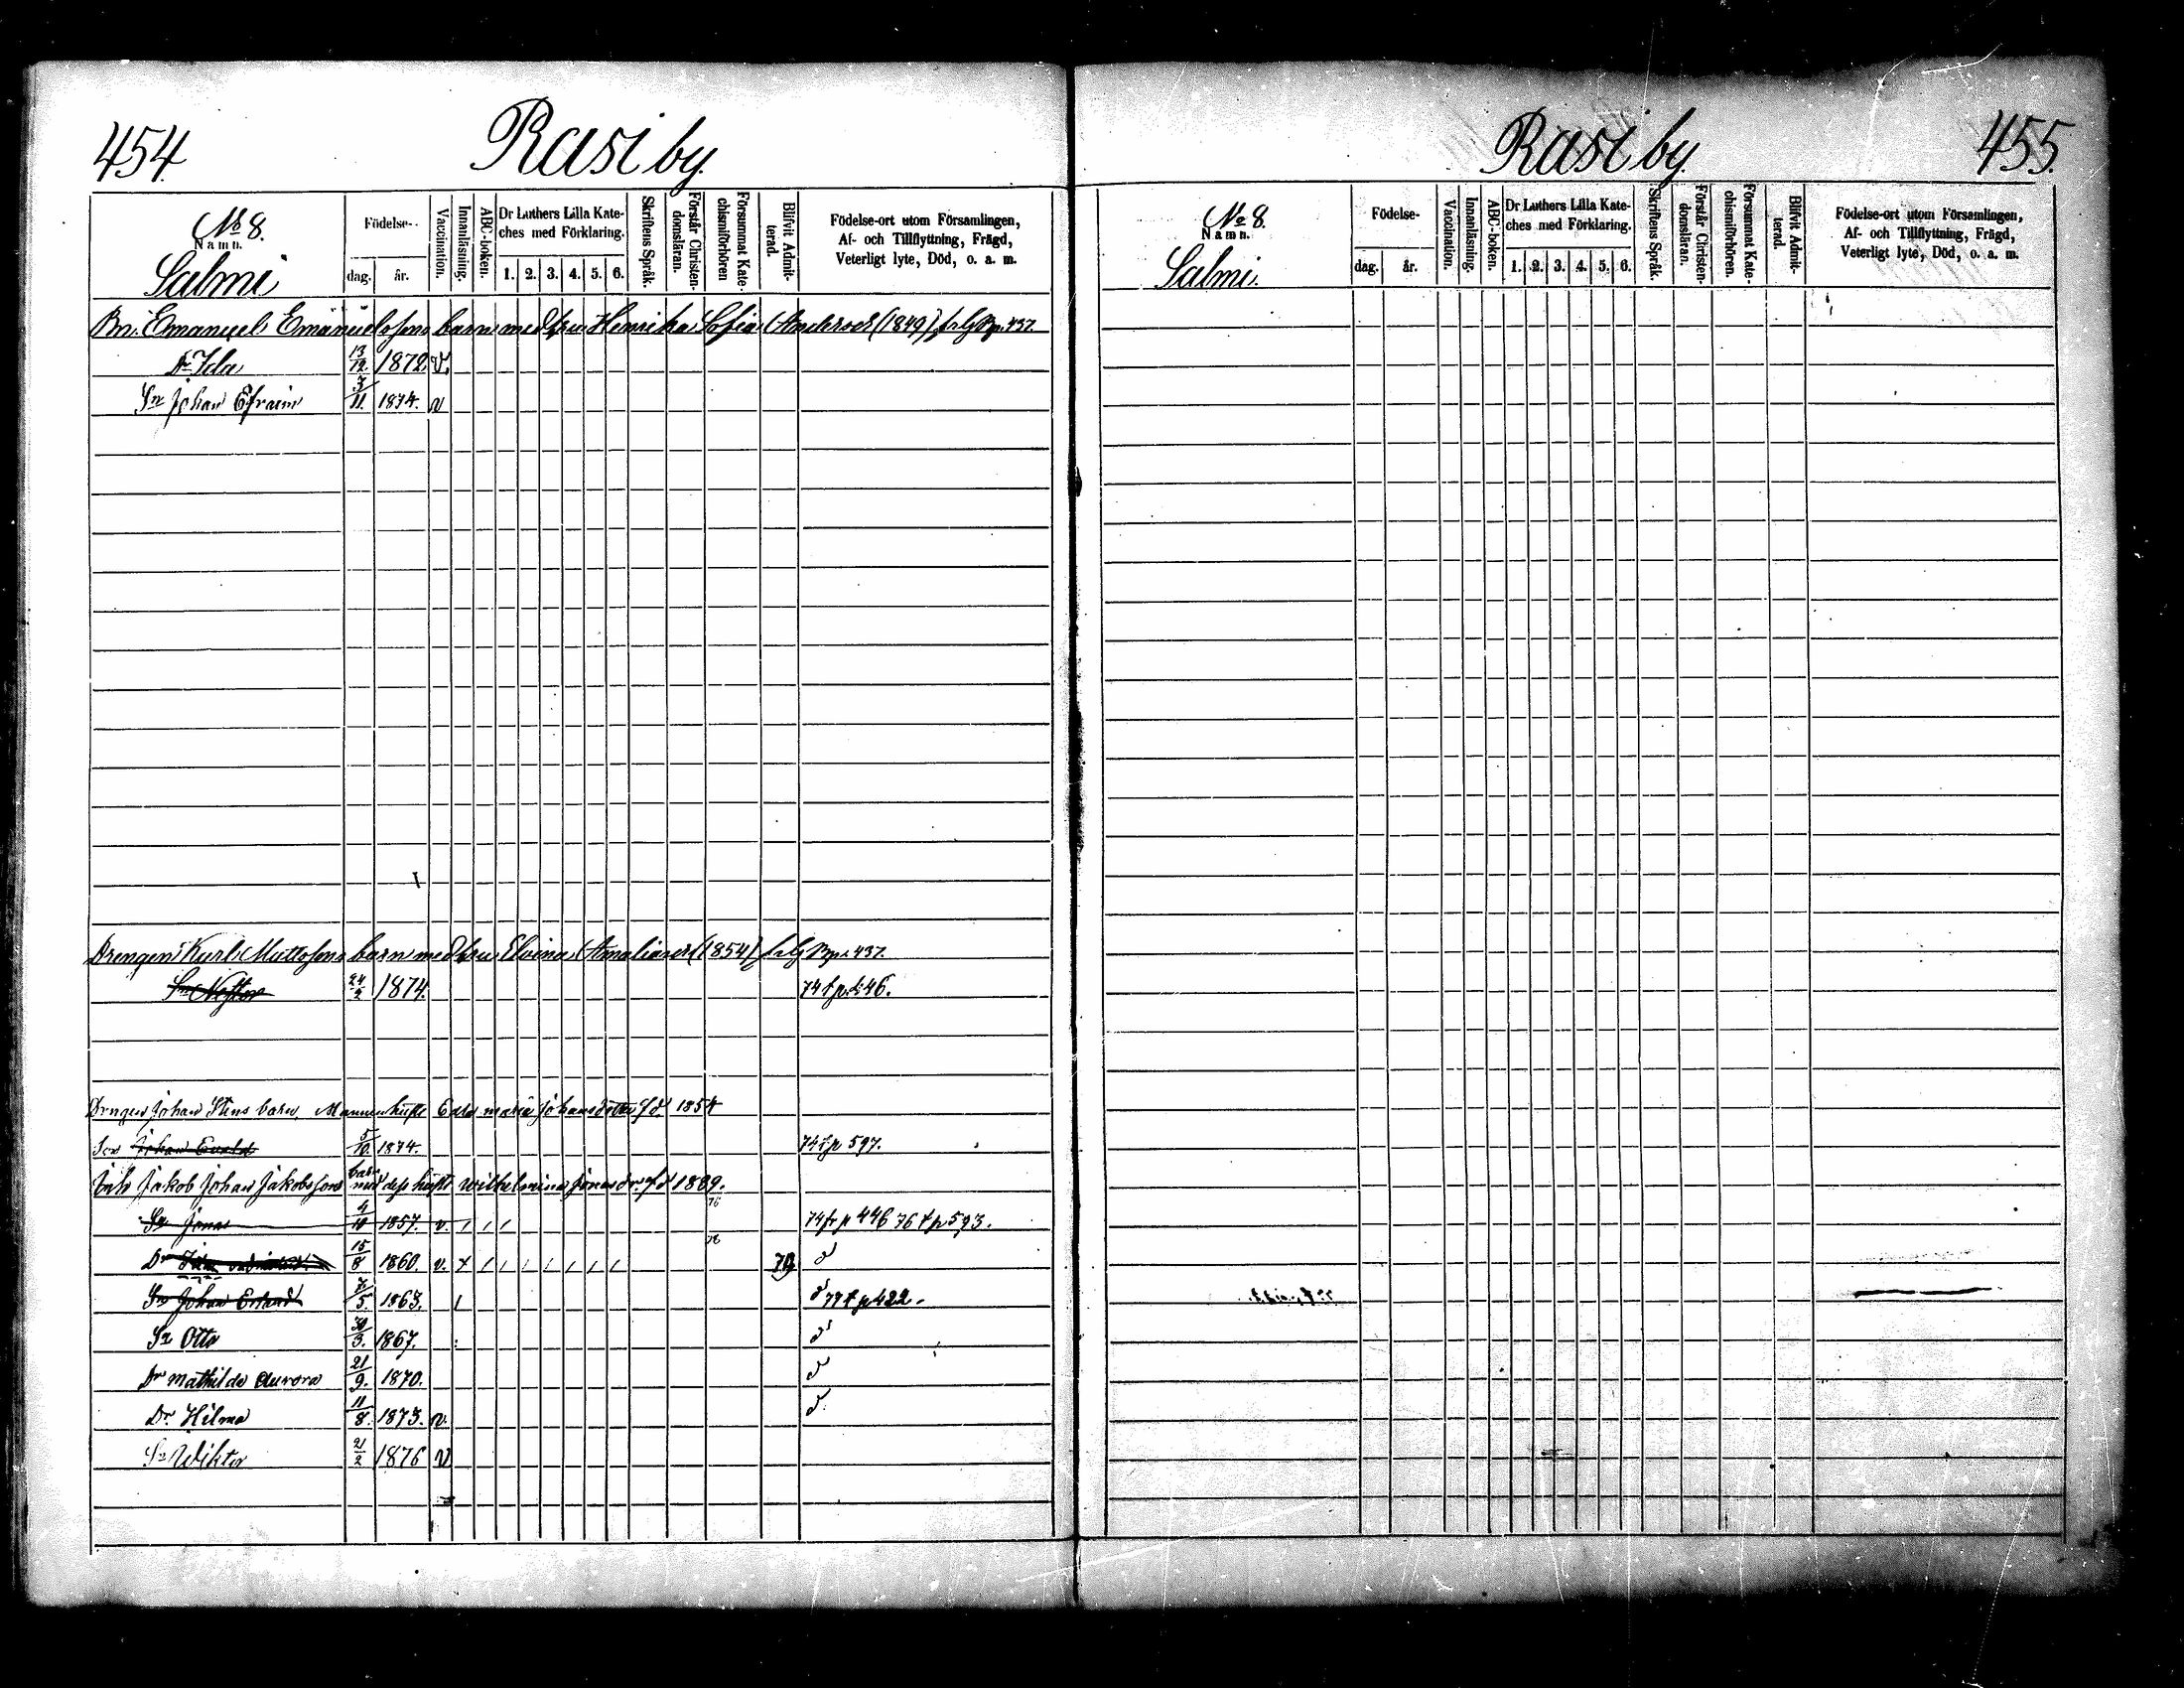 454.
Rasi by.
No 8.
Namn.
Salmi
Födelse-
dag.
år.
Vaccination.
Innanläsning.
ABC-boken.
Dr Luthers Lilla Kate-
ches med Förklaring.
1. 2. 3. 4. 5. 6.
Skriftens Språk.
Förstår Christen-
domsläran.
Försummat Kate-
chismiförhören
Blifvit Admit-
terad.
Födelse-ort utom Församlingen,
Af- och Tillflyttning, Frägd,
Veterligt lyte, Död, o. a. m.
Bn. Emanuel Emanuelssons barn med hru Henrika Sofia Andersdr (1849) 437.
Dr Ida 13/12. 1872. v.
Sn Johan Efraim 3/11. 1874. v
Drengen Karl Mattssons barn med hru Elvina Amalia (1854) 437.
Sn Nestor 24/2 1874. 74 t. p. 446.
Drengen Johan Stens barn, Mannen hustr Edla maria Johansdotter fd. 1854
Son Johan Evald 5/10. 1874. 74 t p 597.
Inh Jakob Johan Jakobsson barn med dess hustr wilhelmina Jonasdr fd 1839.
Sn Jonas 4/10 1857. v. 1 1 1 76 74 fr p 446 76 t p 593.
Dr 15/8 1860. v. 76 79 d
Sn Johan Erland 7/5. 1863. d 77 t p 422.
Sn Otto 30/3. 1867. d
Dr Mathilda Aurora 21/9. 1870. d
Dr Hilma 11/8. 1873. v. d
Sn Wiktor 21/2 1876 v
Rasi by.
455.
No 8.
Namn.
Salmi.
Födelse-
dag.
år.
Vaccination.
Innanläsning.
ABC-boken.
Dr Luthers Lilla Kate-
ches med Förklaring.
1. 2. 3. 4. 5. 6.
Skriftens Språk.
Förstår Christen-
domsläran.
Försummat Kate-
chismiförhören.
Blifvit Admit-
terad.
Födelse-ort utom Församlingen,
Af- och Tillflyttning, Frägd,
Veterligt lyte, Död, o. a. m.